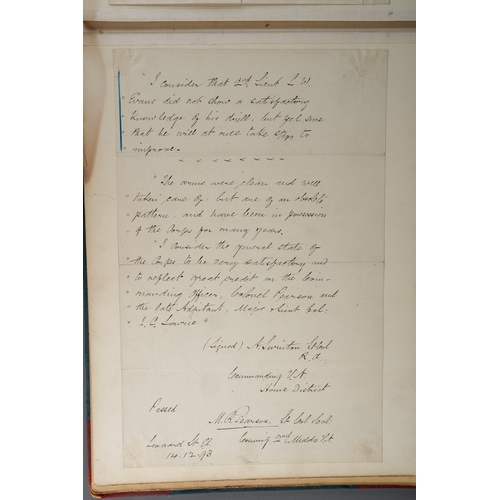 "I consider that 2nd Lieut L. W.
Evans did not show a satisfactory
knowledge of his drill, but feel sure
that he will at once take steps to
improve."
"The arms were clean and well
taken care of but are of an obsolete
pattern, and have been in possession
of the Corps for many years.
"I consider the general state of
the Corps to be very satisfactory and
to reflect great credit on the Com-
manding Officer, Colonel Pearson and
the late Adjutant, Major & Lieut Col:
Lowrie"
(Signed) A. Lt Col
R. A.
Commanding V. A.
Home District
Passed
M. R. Pearson Lt Col & Col
Leonard St
Comming 2nd Middx V A
14.12.93